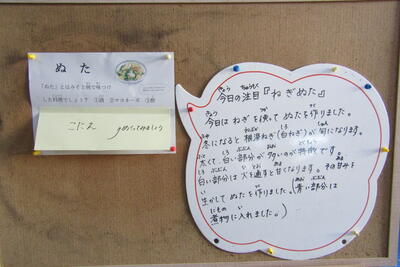 ぬた
「ぬた」とはみそと何で味つけ
した料理でしょう？ ①酒 ②マヨネーズ ③酢
こたえ めくってみましょう
今日の注目『ねぎぬた』
今日はねぎを使ってぬたを作りました。
冬になると根深ねぎ(白ねぎ)が旬になります。
太くて、白い部分が多いのが特徴です。
白い部分は火を通すと甘くなります。その甘みを
生かしてぬたを作りました。(青い部分は
煮物に入れました。)